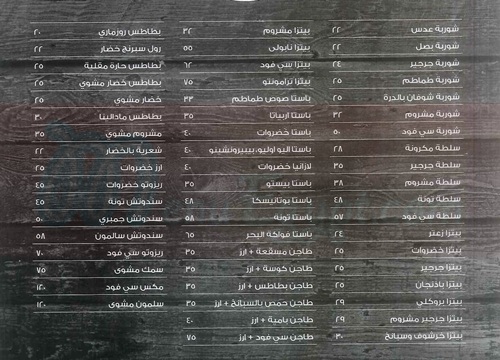 شوربة عدس ٢٢
شوربة بصل ٢٢
شوربة جرجير ٢٤
شوربة طماطم ٢٥
شوربة شوفان بالذرة ٢٥
شوربة مشروم ٣٢
شوربة سي فود ٥٠
سلطة مكرونة ٢٨
سلطة جرجير ٣٥
سلطة مشروم ٣٨
سلطة تونة ٤٨
سلطة سي فود ٥٧
بيتزا زعتر ٢٤
بيتزا خضروات ٢٥
بيتزا جرجير ٢٥
بيتزا باذنجان ٢٥
بيتزا بروكلي ٢٩
بيتزا جرجير مشروم ٢٩
بيتزا خرشوف وسبانخ ٣٠
بيتزا مشروم ٣٢
بيتزا نابولي ٥٥
بيتزا سي فود ٦٢
بيتزا ترامونتو ٧٥
باستا صوص طماطم ٣٣
باستا اربياتا ٣٥
باستا خضروات ٤٠
باستا اليو اوليو، بيبيرونشينو ٤٠
لازانيا خضروات ٤٠
باستا بيستو ٣٥
باستا بوتانيسكا ٤٨
باستا تونة ٥٨
باستا فواكه البحر ٦٥
طاجن مسقعة + ارز ٣٥
طاجن كوسة + ارز ٣٥
طاجن بطاطس + ارز ٣٥
طاجن حمص بالسبانخ + ارز ٣٥
طاجن بامية + ارز ٤٠
طاجن سي فود + ارز ٧٥
بطاطس روزماري ٢٠
رول سبرنج خضار ٢٢
بطاطس حارة مقلية ٢٥
بطاطس خضار مشوي ٢٥
خضار مشوي ٢٥
بطاطس مادالينا ٣٠
مشروم مشوي ٣٥
شعرية بالخضار ٢٢
ارز خضروات ٢٥
ريزوتو خضروات ٤٥
سندوتش تونة ٤٥
سندوتش جمبري ٥٠
سندوتش سالمون ٥٨
ريزوتو سي فود ٧٠
سمك مشوي ٧٥
مكس سي فود ١٢٠
سلمون مشوي ١٢٠